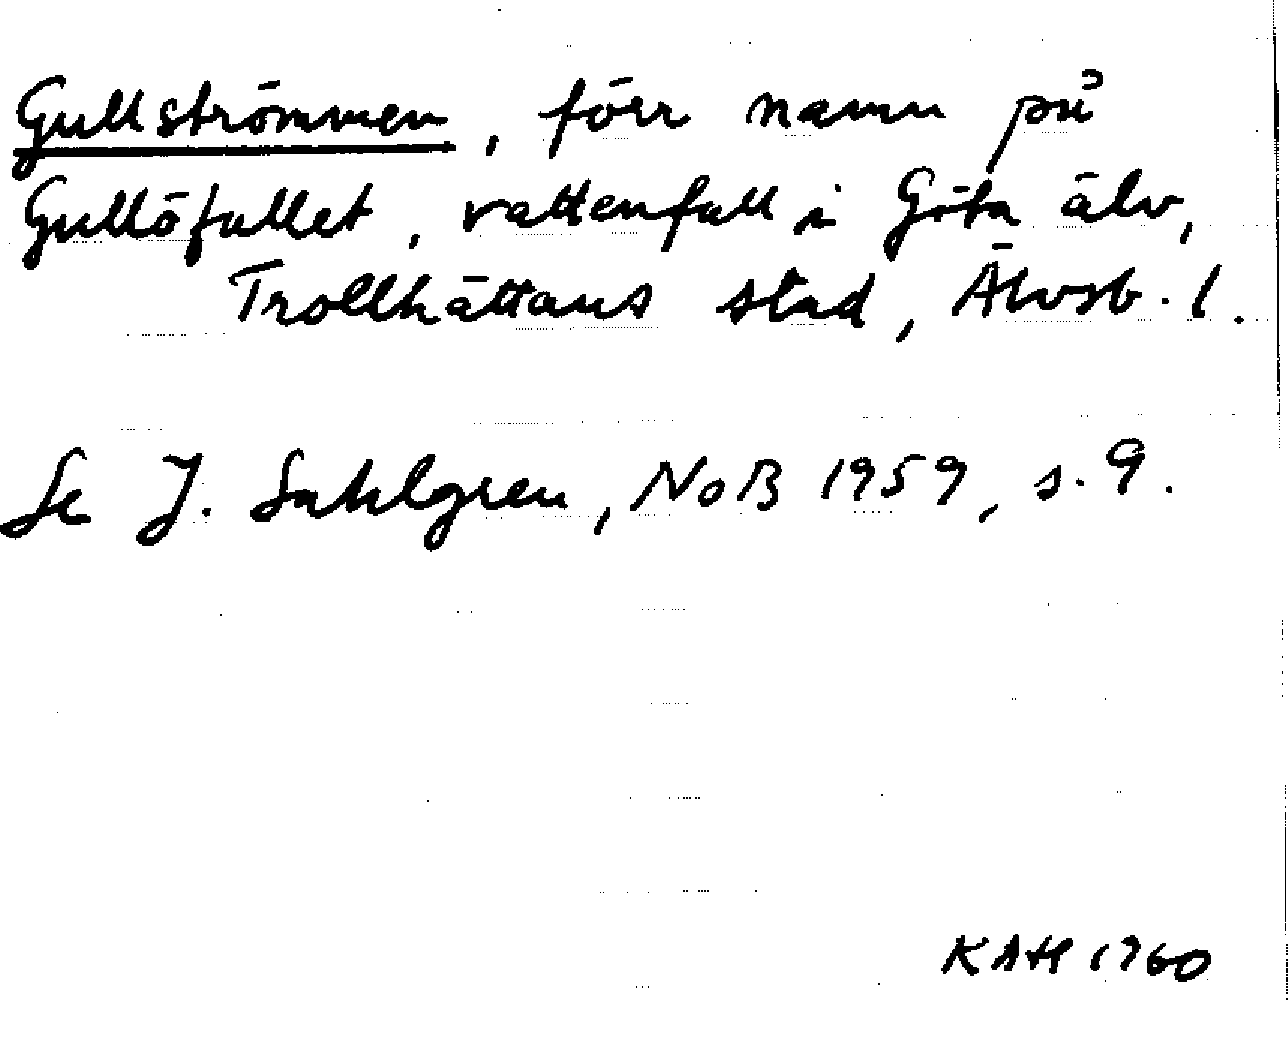 Gullströmmen, förr namn på
Gullöfallet, vattenfall i Göta älv,
Trollhättans stad, Älvsb. l.
Se J. Sahlgren, NoB 1959, s. 9.
KAH 1960